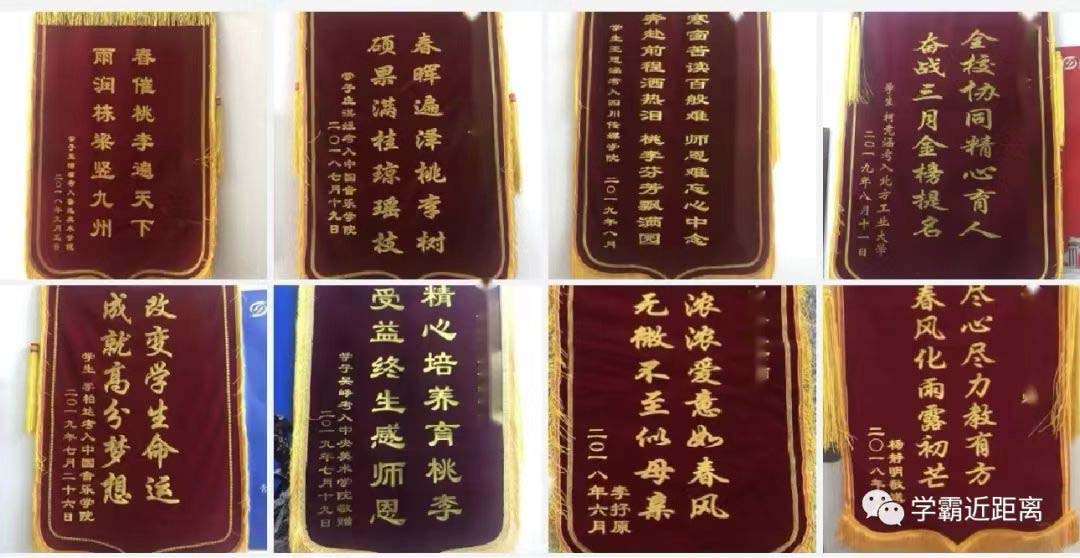 春催桃李遍天下
雨润栋梁竖九州
二〇一八年
春晖遍泽桃李树
硕果满桂琼瑶枝
考入中国音乐学院
二〇一八七月十九日
寒窗苦读百般难 师恩难忘心中念
奔赴前程洒热泪 桃李芬芳飘满园
学生王恩涵考入四川传媒学院 二〇一九年八月
全校协同精心育人
奋战三月金榜提名
学生 柯尧涵考入北方工业大学
二〇一九年八月十一日
改变学生命运
成就高分梦想
学生 李柏达考入中国音乐学院
二〇一九年七月二十六日
精心培养育桃李
受益终生感师恩
学子吴峥考入中央美术学院敬赠
二〇一九年七月十九日
浓浓爱意如春风
无微不至似母亲
李抒原
二〇一八年六月
尽心尽力教有方
春风化雨露初芒
杨静明敬送
二〇一八年
学霸近距离